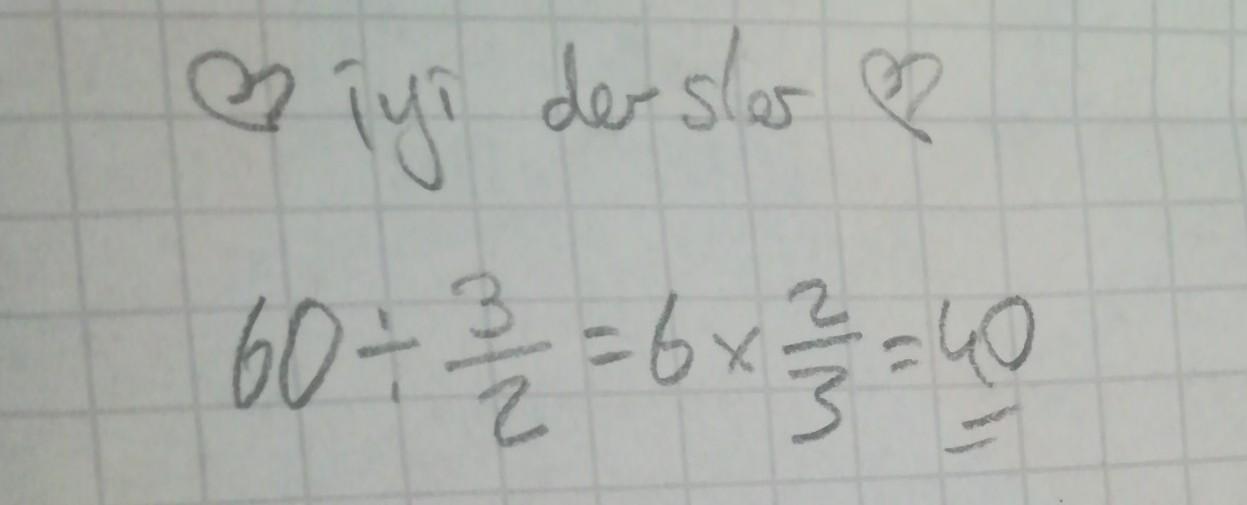 ♡ iyi dersler ♡
60 ÷ 3/2 = 6 × 2/3 = 40